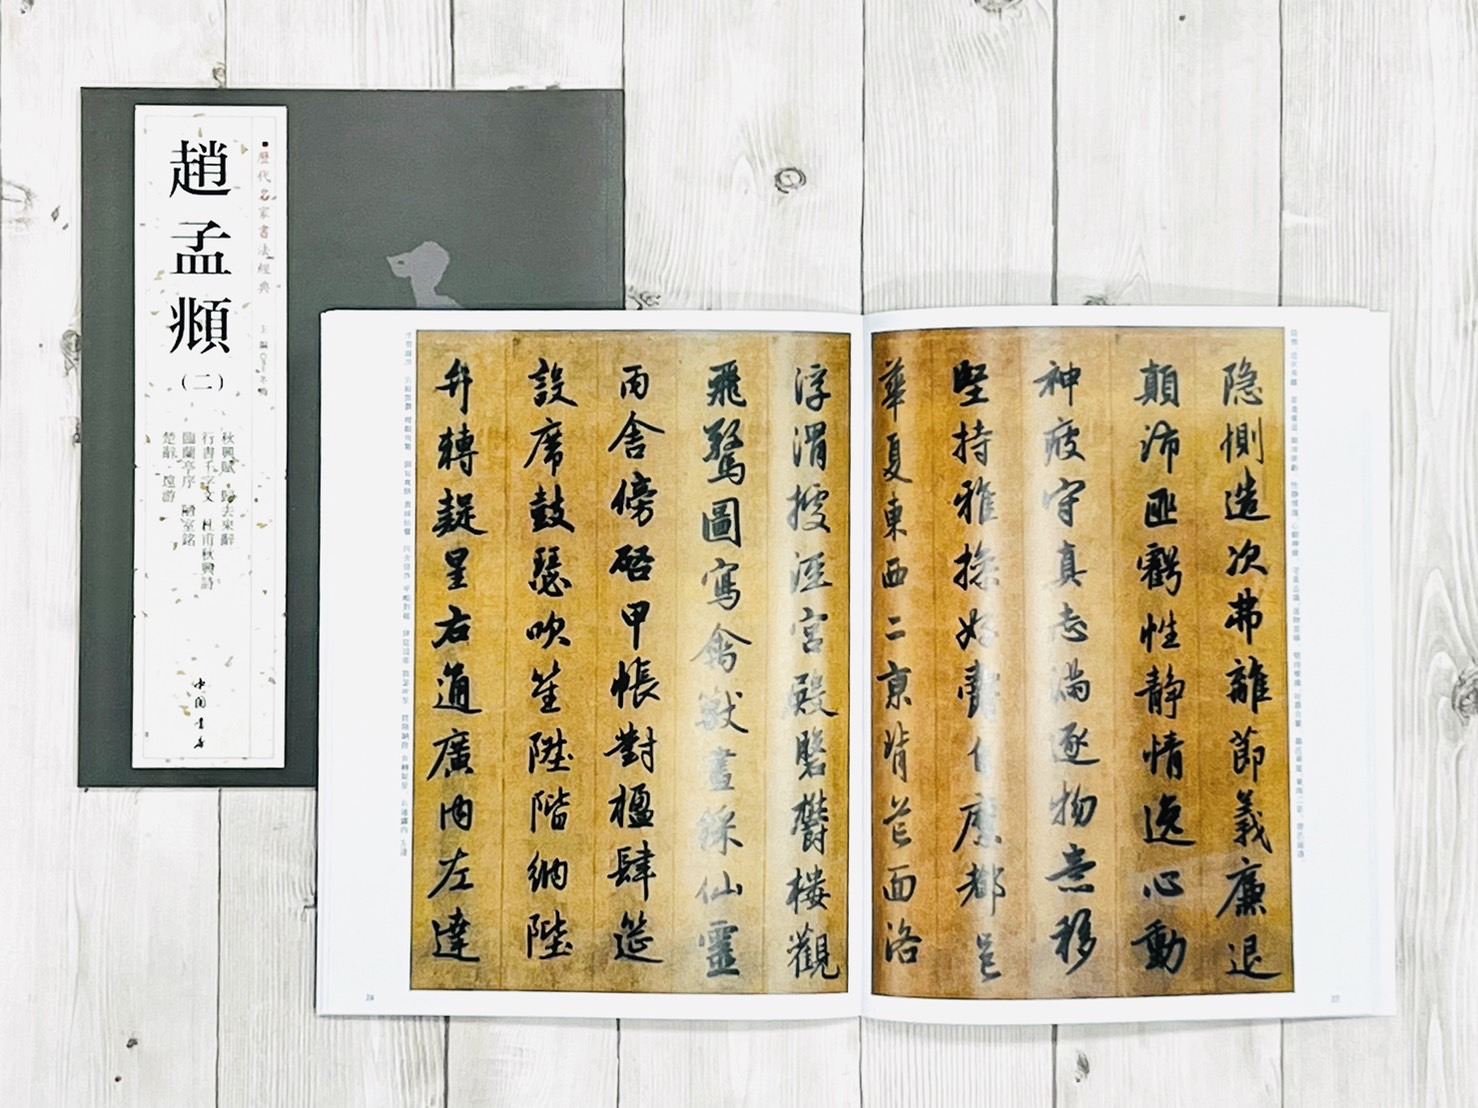 歷代名家書法經典
趙孟頫
(二)
秋興賦 歸去來辭
行書千字文 杜甫秋興詩
臨蘭亭序 陋室銘
楚辭·遠游
中国书店
隐惻造次弗離節義廉退
顛沛匪虧性静情逸心動
神疲守真志滿逐物意移
堅持雅操好爵自縻都邑
華夏東西二京背芒面洛
浮渭據涇宮殿盤鬱樓觀
飛驚圖寫禽獸畫綵仙靈
丙舍傍啓甲帳對楹肆筵
設席鼓瑟吹笙陞階納陛
弁轉疑星右通廣内左達